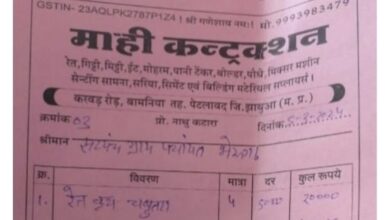 GSTIN- 23AQLPK2787P1Z4 ॥ श्री गणेशाय नमः॥ मो.9993983479
माही कन्ट्रक्शन
रेत, गिट्टी, मिट्टी, ईंट, मोहरम, पानी टेंकर, बोल्डर, पौधे, मिक्सर मशीन
सेन्टींग सामना, सरिया, सिमेंट एवं बिल्डिंग मटेरियल सप्लायर्स ।
करवड़ रोड़, बामनिया तह. पेटलावद जि.झाबुआ (म. प्र.)
क्रमांक 03 प्रो. नाथु कटारा दिनांक
श्रीमान सरपंच ग्राम पंचायत
क्र. विवरण मात्रा दर कुल रूपये
1. रेत 4 20000